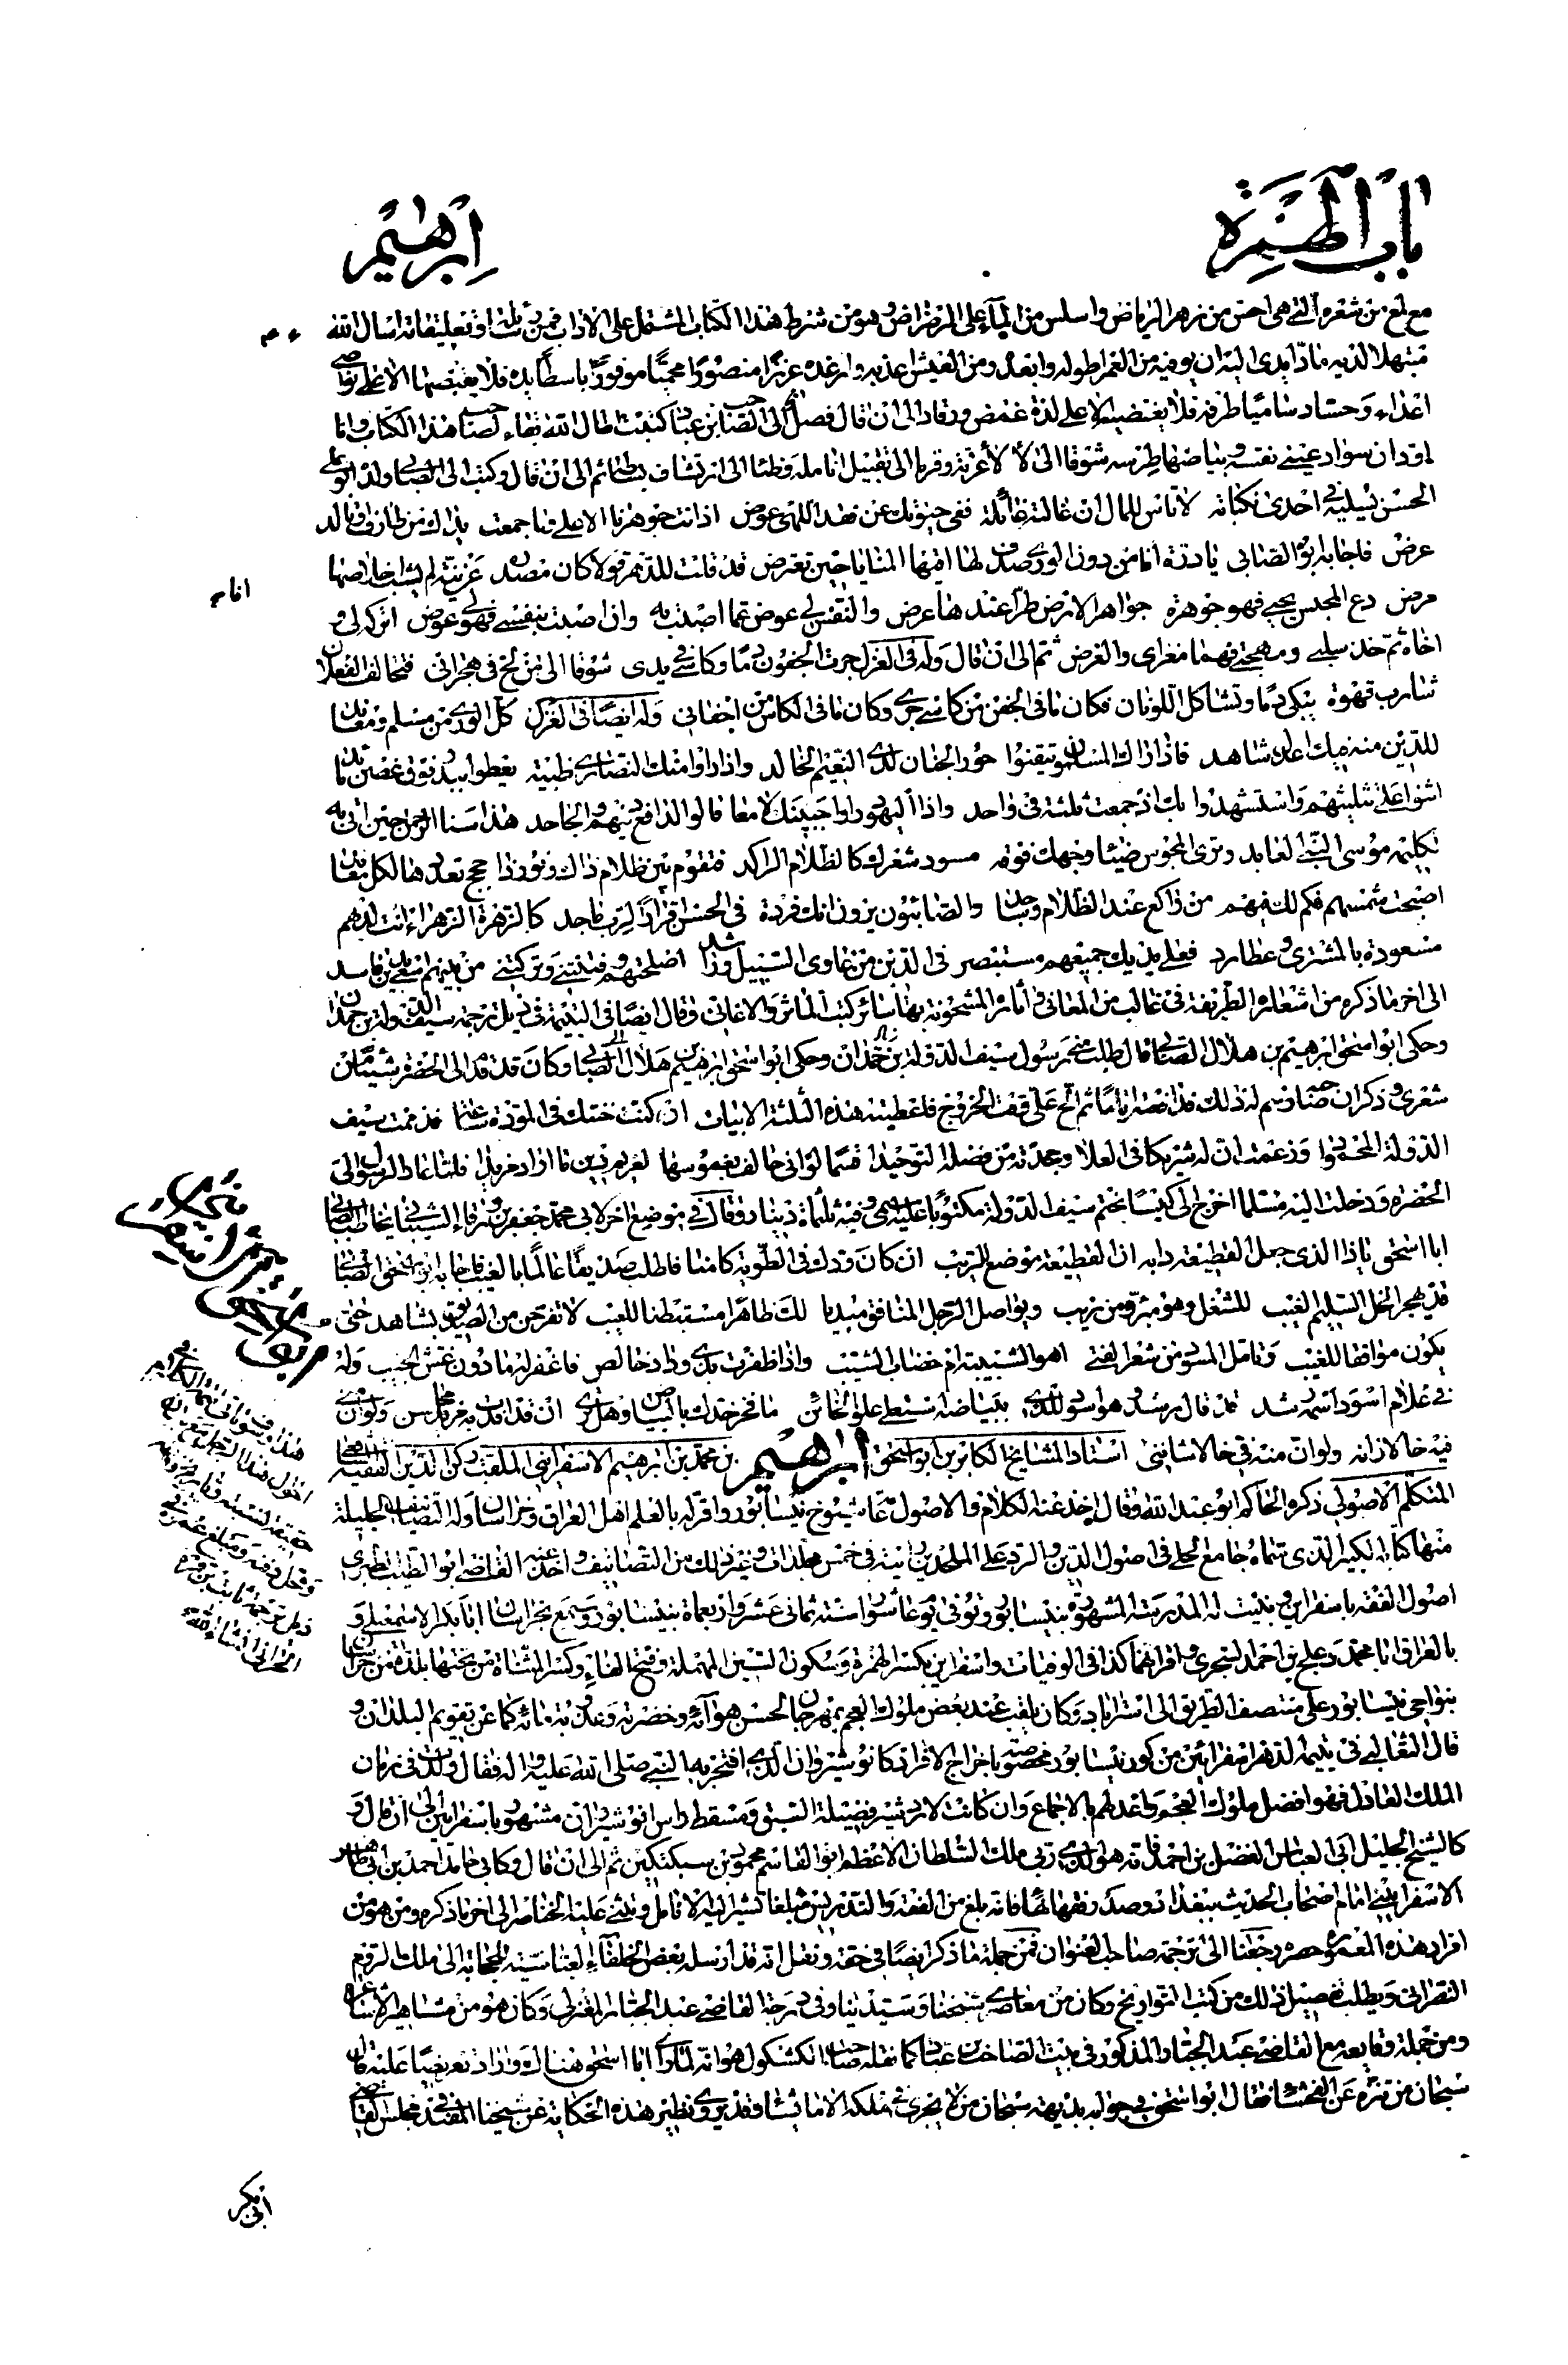 باب الهمزة
ابرهيم
مع لمع من شعره التي هي احسن من زهر الرياض واسلس من الماء على الرضراض وهو من شرط هذا الكتاب المشتمل على الاداب فمن ذلك او تعليقاته اسال الله
مبتهلا لديه مادا يدى اليه ان يوفيه من العمر اطوله وابعده ومن العيش اعذبه وارغده عزيزا منصورا محميا موفورا باسطا يده فلا يقبضها الا على نواصى
اعداء وحساد ساميا طرفه فلا يغضيه الا على لذة غمض ورقاد الى ان قال فصل الى الصاحب ابن عباد كتبت اطال الله بقاء الصاحب هذا الكتاب وانا
اود ان سواد عينى نفسه وبياضها طرسه شوقا الى لألاء غرته وقرما الى تقبيل انامله وظمئا الى ارتشاف بساطه ثم الى ان قال وكتب الى الصابى ولده ابو على
الحسن يسليه فى احدى نكباته لا تاس للمال ان غالته غائلة ففى حيوتك عن فقد اللهى عوض اذ انت جوهرنا الاعلى وما جمعت يداك من طارف وتالد
عرض فاجابه ابو الصابى يا درة انا من دون الورى صدف لها اقيها المنايا حين تعترض قد قلت للدهر قولا كان مصدره عن نية لم يشب اخلاصها
مرض دع المحسن يحيى فهو جوهرة جواهر الارض طرا عندها عرض والنفس لى عوض عما اصبت به وان اصبت بنفسى فهو لى عوض اتركه لى و
اخاه ثم خذ سلبى ومهجتى فهما مغزاى والغرض ثم الى ان قال وله فى الغزل جرت الجفون دما وكاسى فى يدى شوقا الى من لج فى هجرانى فتخالف الفعلان
شارب قهوة يبكى دما وتشاكل اللونان فكان ما فى الجفن من كاسى جرى وكان ما فى الكاس من اجفانى وله ايضا فى الغزل كل الورى من مسلم ومعاهد
للدين منه فيك اعدل شاهد فاذا راك المسلمون تيقنوا حور الجنان لدى النعيم الخالد واذا راوا منك النصارى ظبية يعطوا ببدر فوق غصن مائد
اثنوا على تثليثهم واستشهدوا بك اذ جمعت ثلثة فى واحد واذا اليهود راوا جبينك لامعا قالوا لدافع دينهم والجاحد هذا سنا الرحمن حين ابانه
لكليمه موسى النبى العابد وترى المجوس ضياء وجهك فوقه مسود شعرك كالظلام الراكد فتقوم بين ظلام ذاك ونور ذا حجج تعدها لكل معاند
اصبحت شمسهم فكم لك فيهم من راكع عند الظلام وساجد والصابئون يرون انك فردة فى الحسن اقرارا لرب ماجد كالزهرة الزهراء انت لديهم
مسعودة بالمشترى وعطارد فعلى يديك جميعهم مستبصر فى الدين من غاوى السبيل وراشد اصلحتهم وفتنتنى وتركتنى من بينهم اسعى بدين فاسد
الى اخر ما ذكره من اشعاره الطريفة فى غالب من المعانى واثاره المشحونة بها سائر كتب الماثر والاغانى وقال ايضا فى اليتيمة فى ذيل ترجمة سيف الدولة بن حمدان
وحكى ابو اسحق ابرهيم بن هلال الصابى قال طلب منى رسول سيف الدولة بن حمدان وحكى ابو اسحق ابرهيم بن هلال الصابى وكان قد قدم الى الحضرة شيئا من
شعرى وذكر ان صاحبه رسم له ذلك فدافعته اياما ثم الح على وقت الخروج فاعطيته هذه الثلثة الابيات ان كنت خنتك فى المودة ساعة فذممت سيف
الدولة المحمودا وزعمت ان له شريكا فى العلا وجحدته من فضله التوحيدا قسما لو انى حالف بغموسها لغريم دين ما اراد مزيدا فلما عاد الرسول الى
الحضرة ودخلت اليه مسلما اخرج لى كيسا بختم سيف الدولة مكتوبا عليه اسمى وفيه ثلثمأة دينار وقال فى موضع اخر لابى محمد جعفر بن ورقاء الشيبانى يخاطب الصابى
ابا اسحق ياذا الذى جعل القطيعة دابه ان القطيعة موضع للريب ان كان ودك فى الطوية كامنا فاطلب صديقا عالما بالغيب فاجابه ابو اسحق الصابى
قد يهجر الخل السليم الغيب للشغل وهو مبرؤ من ريب ويواصل الرجل المنافق مبديا لك ظاهرا مستبطنا للعيب لا تفرحن من الصديق بشاهد حتى
يكون موافقا للغيب وتامل المسود من شعر الفتى اهو الشبيبة ام خضاب الشيب واذا ظفرت بذى وداد خالص فاغفر له ما دون غش الجيب وله
فى غلام اسود اسمه رشد قد قال رشد وهو اسود للذى ببياضه استعلى علو الخائن ما فخر خدك بالبياض وهل ترى ان قد افدت به مزيد محاسن ولو ان
فيه خالا زانه ولو ان منه فى خالا شاننى استاد المشايخ الاكابر بن ابو اسحق ابرهيم بن محمد بن ابرهيم الاسفراينى الملقب ركن الدين الفقيه الشافعى
المتكلم الاصولى ذكره الحاكم ابو عبد الله وقال اخذ عنه الكلام والاصول عامة شيوخ نيسابور واقر له بالعلم اهل العراق وخراسان وله التصانيف الجليلة
منها كتابه الكبير الذى سماه جامع الحلى فى اصول الدين والرد على الملحدين رايته فى خمس مجلدات وغير ذلك من التصانيف واخذ عنه القاضى ابو الطيب الطبرى
اصول الفقه باسفراين وبنيت له المدرسة المشهورة بنيسابور وتوفى يوم عاشورا سنة ثمانى عشر واربعمأة بنيسابور وسمع بخراسان ابا بكر الاسمعيلى و
بالعراق ابا محمد دعلج بن احمد السجزى واقرانهما كذا فى الوفيات واسفراين بكسر الهمزة وسكون السين المهملة وفتح الفاء وكسر المثناة من تحتها بلدة من خراسان
بنواحى نيسابور على منتصف الطريق الى استراباد وكان يلقب عند بعض ملوك العجم بمهرجان لحسن هوائه وخضرته وعذوبة مائه كما عن تقويم البلدان و
قال الثعالبى فى يتيمة الدهر اسفراين من كور نيسابور مخصوصة باخراج الافراد كانوشيروان الذى افتخر به النبى صلى الله عليه واله فقال ولدت فى زمان
الملك العادل فهو افضل ملوك العجم واعدلهم بالاجماع وان كانت لاردشير فضيلة السبق ومسقط راس انوشيروان مشهور باسفراين الى ان قال و
كالشيخ الجليل ابى العباس الفضل بن احمد فانه هو الذى ربى ملك السلطان الاعظم ابو القاسم محمود بن سبكتكين ثم الى ان قال وكابى حامد احمد بن ابى طاهر
الاسفراينى امام اصحاب الحديث ببغداد وصدر فقهائها فانه بلغ من الفقه والتدريس مبلغا تشير اليه الانامل وتثنى عليه الخناصر الى اخر ما ذكره ومن هو من
افراد هذه العصر وحصره رجعنا الى ترجمة صاحب العنوان فمن جملة ما ذكر ايضا فى حقه ونقل انه قد ارسله بعض الخلفاء العباسية للمحاجة الى ملك الروم
النصرانى ويطلب تفصيل ذلك من كتب التواريخ وكان من معاصرى شيخنا وسيدينا وفى درجة القاضى عبد الجبار المعتزلى وكان هو من مشاهير الاشاعرة
ومن جملة وقايعه مع القاضى عبد الجبار المذكور فى بيت الصاحب بن عباد كما نقله صاحب الكشكول هو انه لما راى ابا اسحق هناك واراد تعريضا عليه قال
سبحان من تنزه عن الفحشاء فقال ابو اسحق فى جوابه بديهة سبحان من لا يجرى فى ملكه الا ما يشاء وقد يروى نظير هذه الحكاية عن شيخنا المفيد فى مجلس القاضى
انامه
ابى بكر